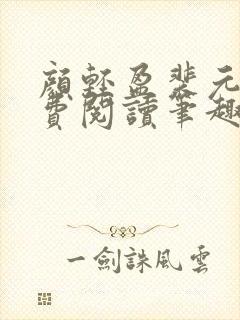 顏輕盈裴元
費閱讀筆趣
一劍誅風雲